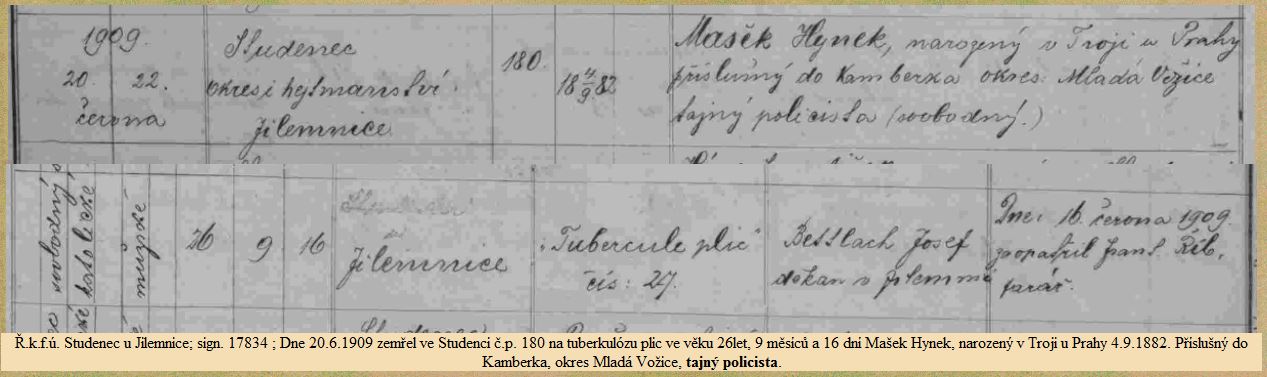 1909.
20. 22.
června
Studenec
okres. hejtmanství
Jilemnice
180.
18 4/9 82
Mašek Hynek, narozený v Troji u Prahy
příslušný do Kamberka okres. Mladá Vožice
tajný policista (svobodný.)
svobodný
katolické
mužské
26 9 16
Jilemnice
"Tubercule plic"
čís: 27.
Bettlach Josef
děkan v Jilemnici
Dne: 16. června 1909.
zaopatřil
farář.
Ř.k.f.ú. Studenec u Jilemnice; sign. 17834 ; Dne 20.6.1909 zemřel ve Studenci č.p. 180 na tuberkulózu plic ve věku 26let, 9 měsíců a 16 dní Mašek Hynek, narozený v Troji u Prahy 4.9.1882. Příslušný do
Kamberka, okres Mladá Vožice, tajný policista.